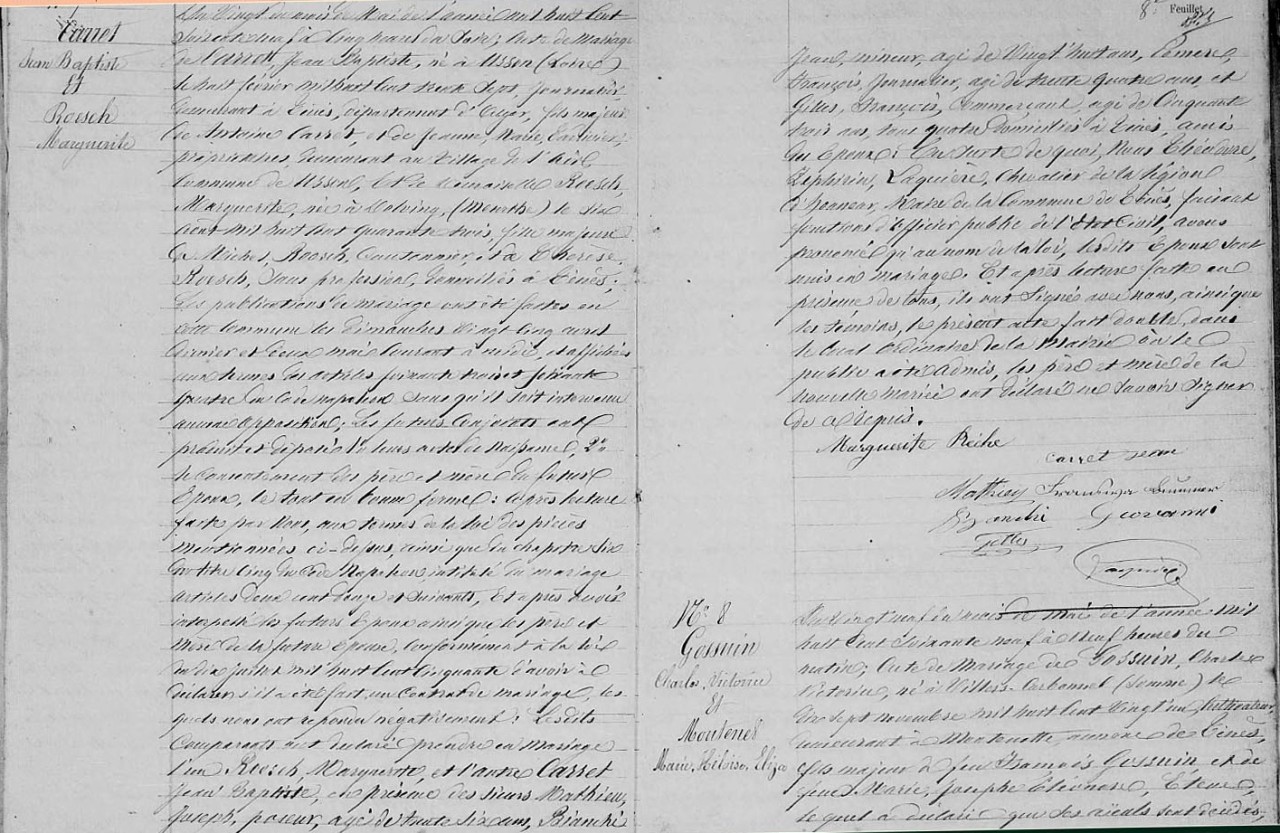 Carret
Jean Baptiste
Et
Roesch
Marguerite
Du Vingt du mois de Mai de l'année mil huit Cent
soixante neuf à Cinq heures du Soir; Acte de Mariage
de Carret, Jean Baptiste, né à Usson (Loire)
le huit février mil huit Cent trente Sept, Journalier
demeurant à Ténès, département d'Alger, fils majeur
de Antoine Carret, et de Jeanne, Marie,
propriétaires, demeurant au Village de
Commune de Usson, Et de demoiselle Roesch
Marguerite, née à Dolving, (Meurthe) le Six
mil huit Cent quarante trois, fille majeure
de Michel, Roesch, Cantonnier, et à Thérèse,
Roesch, Sans profession, domiciliés à Ténès.
Les publications de mariage ont été faites en
cette Commune les Dimanches Vingt Cinq avril
dernier et deux mai Courant à midi, et affichées
aux termes des articles soixante trois et soixante
quatre du Code napoléon sans qu'il soit intervenu
aucune opposition; Les futurs Conjoints ont
produit et déposé 1° leurs actes de Naissance, 2°
le Consentement des père et mère du futur
Epoux, le tout en bonne forme: après lecture
faite par Nous, aux termes de la loi des pièces
mentionnées ci-dessus, ainsi que du chapitre Six
du titre Cinq du Code Napoléon intitulé du mariage
articles deux cent douze et suivants, Et après avoir
interpellé les futurs Epoux ainsi que les père et
mère de la future Epouse, Conformément à la loi
du dix juillet mil huit Cent Cinquante d'avoir à
déclarer s'il a été fait un Contrat de mariage, les
quels nous ont répondu négativement: Lesdits
Comparants ont déclaré prendre en Mariage
l'un Roesch, Marguerite, et l'autre Carret
Jean Baptiste, en présence des sieurs Mathieu,
Joseph, poseur, agé de trente six ans, Bianchi
8e Feuillet
Jean, mineur, agé de Vingt huit ans,
François, Journalier, agé de trente quatre ans, et
Gilles, François, Commerçant, agé de Cinquante
trois ans, tous quatre Domiciliés à Ténès, amis
du Epoux: En suite de quoi, Nous Théodore,
Zéphirin, Laquière, Chevalier de la légion
d'honneur, Maire de la Commune de Ténès, faisant
fonctions d'officier public de l'Etat Civil, avons
prononcé qu'au nom de la loi, lesdits Epoux sont
unis en mariage. Et après lecture faite en
présence de tous, ils ont Signé avec nous, ainsi que
les témoins, le présent acte fait double, dans
le local Ordinaire de la Mairie où le
public a été admis, les père et mère de la
nouvelle mariée ont déclaré ne savoir signer
de ce requis.
Marguerite Rèche
Carret Jean
Mathieu
Bianchi Giovanni
Gilles
Laquière
N° 8
Gossuin
Charles, Victorice
Et
Moutenet
Marie, Héloïse, Eliza
Du Vingt neuf du mois de Mai de l'année mil
huit Cent Soixante neuf à Neuf heures du
matin; Acte de Mariage de Gossuin, Charles
Victorice, né à Villers-Carbonnel (Somme) le
dix sept novembre mil huit Cent Vingt un, Cultivateur,
demeurant à Montenotte, annexe de Ténès,
fils majeur de feu François Gossuin et de
feue Marie, Josèphe Eléonore,
lequel a déclaré que ses aïeuls sont décédés